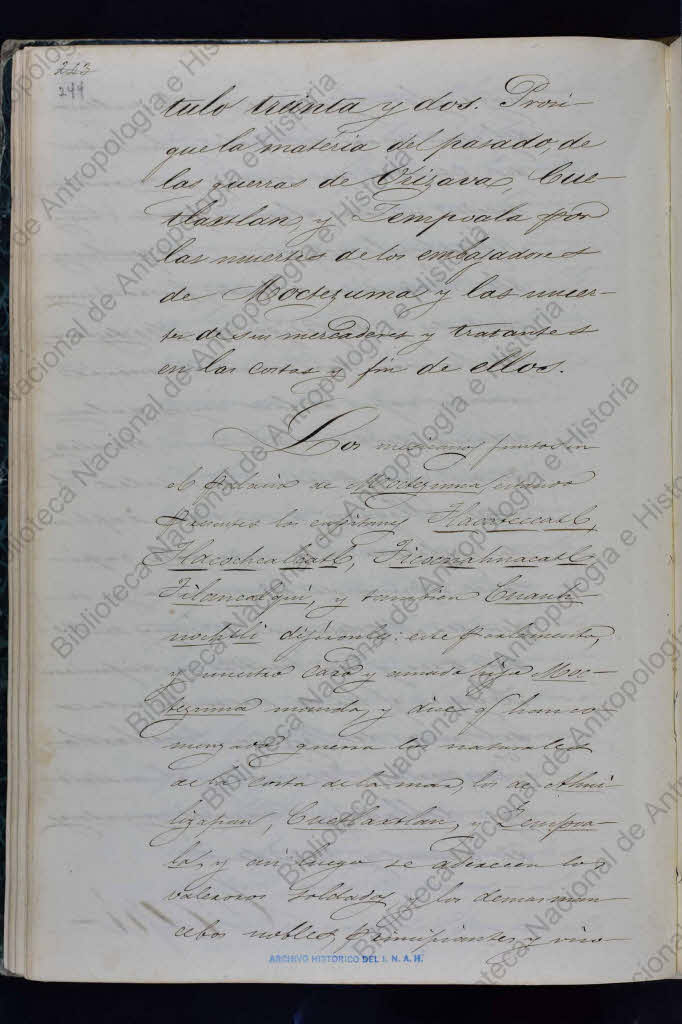 223
244
tulo treinta y dos. Prosi-
gue la materia del pasado, de
las guerras de Orizava, Cue-
tlaxtlan, y Zempoala por
las muertes de los embajadores
de Moctezuma y las muer-
tes de sus mercaderes y tratantes
en las costas y fin de ellos.
Los mexicanos juntos en
el palacio de Moctezuma estando
presentes los capitanes Tlacateccatl,
Tlacochcalcatl, Ticocnahuacatl
Tilancalqui, y tambien Cuauh-
nochtli dijeronles: este parlamento,
y nuestro caro y amado hijo Moc-
tezuma manda, y dice q.e han co-
menzado guerra los naturales
de la costa de la mar, los de Ahui-
lizapan, Cuetlaxtlan, y Zempoa-
la, y asi luego se aderecen los
valerosos soldados y los demas man-
cebos nobles, principiantes, y viso-
ARCHIVO HISTORICO DEL I. N. A. H.
Biblioteca Nacional de Antropología e Historia